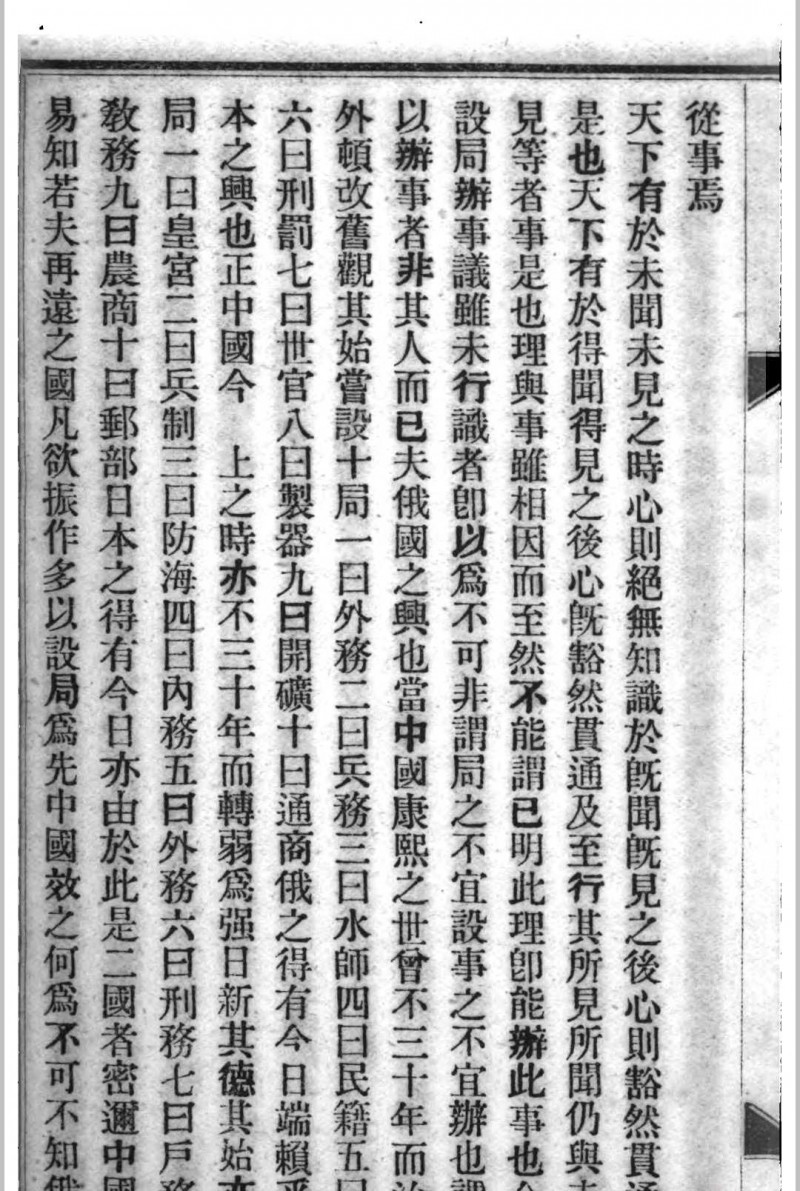 從事焉
天下有於未聞未見之時心則絕無知識於旣聞旣見之後心則豁然貫通
是也天下有於得聞得見之後心旣豁然貫通及至行其所見所聞仍與未
見等者事是也理與事雖相因而至然不能謂已明此理卽能辦此事也今
設局辦事議雖未行識者卽以爲不可非謂局之不宜設事之不宜辦也謂
以辦事者非其人而已夫俄國之興也當中國康熙之世曾不三十年而治
外頓改舊觀其始嘗設十局一曰外務二曰兵務三曰水師四曰民籍五曰
六曰刑罰七曰世官八曰製器九曰開礦十曰通商俄之得有今日端賴乎
本之興也正中國今　上之時亦不三十年而轉弱爲强日新其德其始亦
局一曰皇宮二曰兵制三曰防海四曰內務五曰外務六曰刑務七曰戶務
敎務九曰農商十曰郵部日本之得有今日亦由於此是二國者密邇中國
易知若夫再遠之國凡欲振作多以設局爲先中國效之何爲不可不知俄